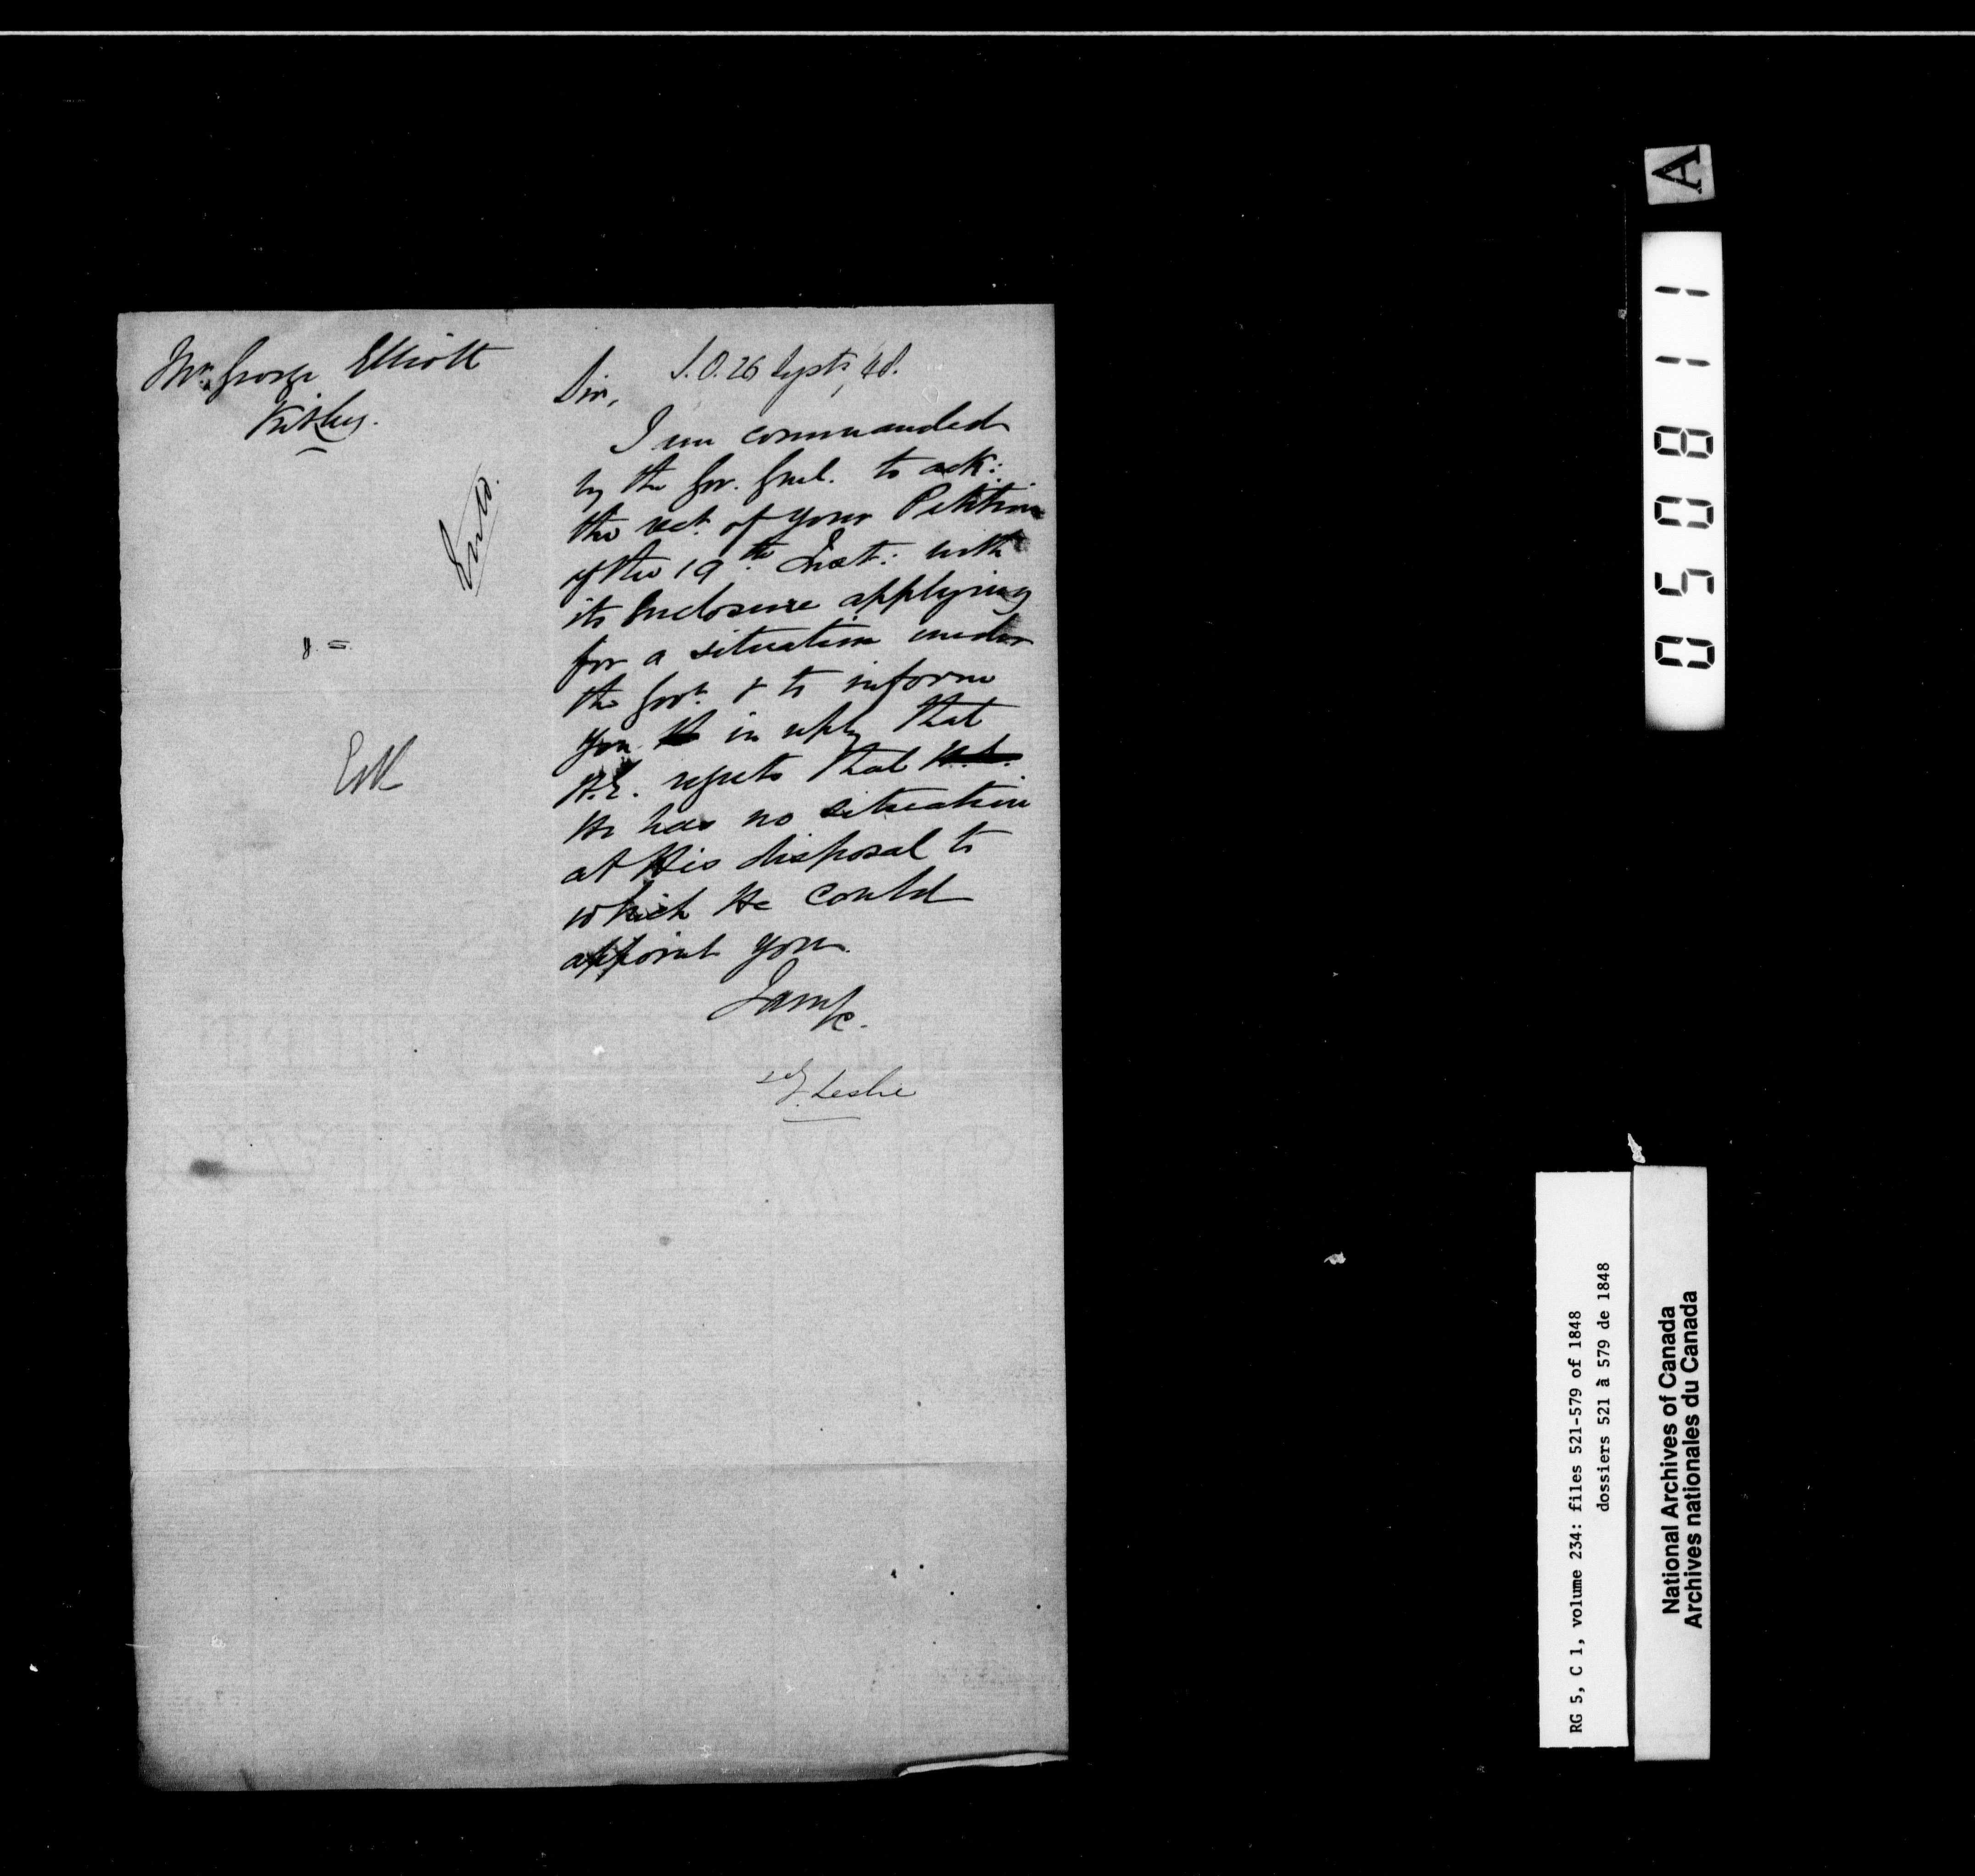 Mr. George Elliott
Kitley.
Entd.
S.O. 26 Septr. 48.
Sir,
I am commanded
by the Gov. Genl. to ack:
the rect. of your Petition
of the 19th. Inst: with
its Enclosure applying
for a situation under
the Govt. & to inform
you in reply that
H.E. regrets that H.E.
He has no situation
at His disposal to
which He could
appoint you.
I am &c.
sd J. Leslie
A
050811
RG 5, C 1, volume 234: files 521-579 of 1848
dossiers 521 à 579 de 1848
National Archives of Canada
Archives nationales du Canada